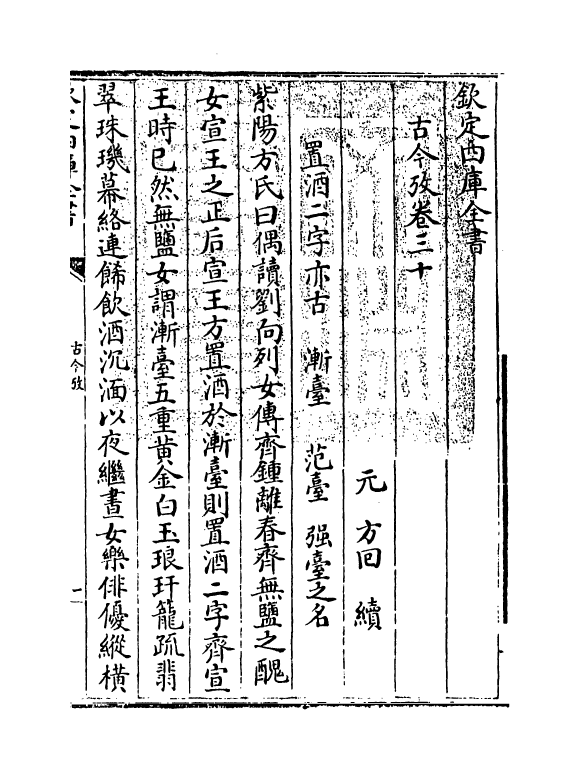 欽定四庫全書
古今攷卷三十
元 方回 續
置酒二字亦古 漸臺 范臺 强臺之名
紫陽方氏曰偶讀劉向列女傳齊鍾離春齊無鹽之醜
女宣王之正后宣王方置酒於漸臺則置酒二字齊宣
王時已然無鹽女謂漸臺五重黄金白玉琅玕籠疏翡
翠珠璣幕絡連飾飲酒沉湎以夜繼晝女樂俳優縱橫
欽定四庫全書
古今攷
一